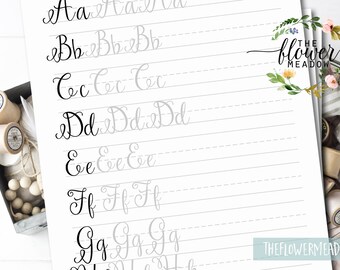 Aa Aa Aa
Bb Bb Bb
Cc Cc Cc
Dd Dd Dd
Ee Ee Ee
Ff Ff Ff
Gg Gg Gg
THE
flower
MEADOW
THEFLOWERMEAD